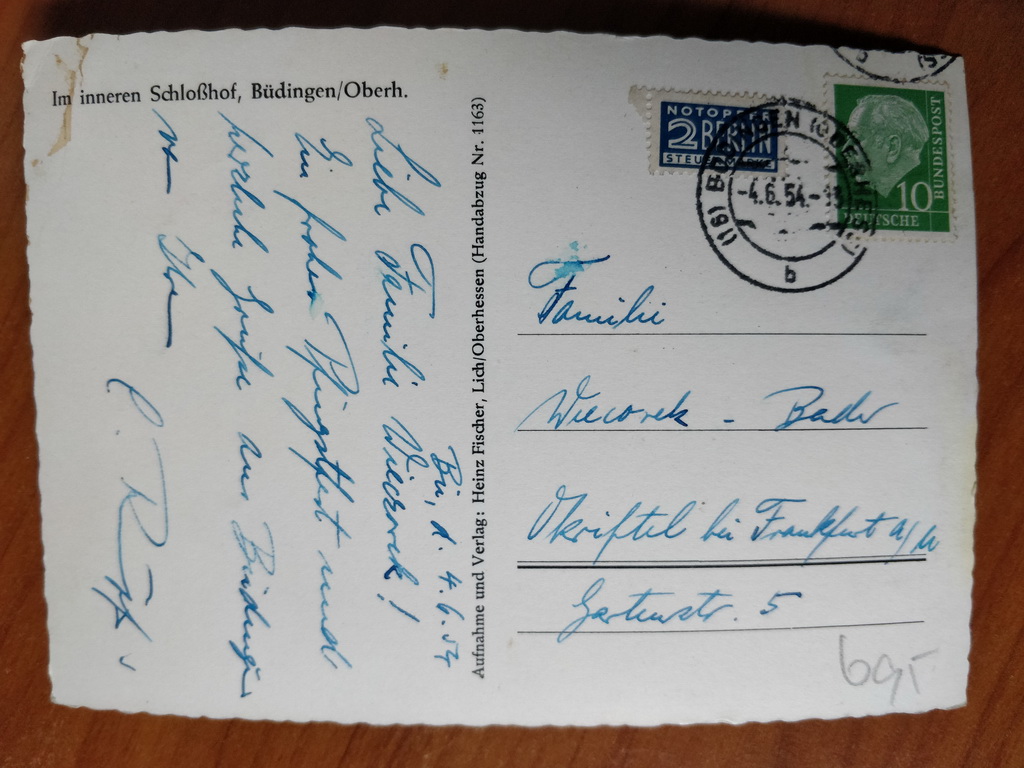 Im inneren Schloßhof, Büdingen/Oberh.
Bü, d. 4.6.54
Liebe Familie Wiecorek!
Ein frohes Pfingstfest und
herzliche Grüße aus Büdingen
Ihre
Aufnahme und Verlag: Heinz Fischer, Lich/Oberhessen (Handabzug Nr. 1163)
NOTOPFER
2 BERLIN
STEUERMARKE
(16) BÜDINGEN (OBERHESS)
-4.6.54.-18
b
10
DEUTSCHE
BUNDESPOST
Familie
Wiecorek - Bader
Okriftel bei Frankfurt a/M
Gartenstr. 5